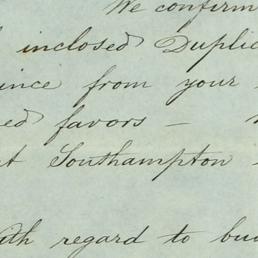 We confirm
inclosed Duplic
ince from your
ed favors –
at Southampton –
ith regard to bu